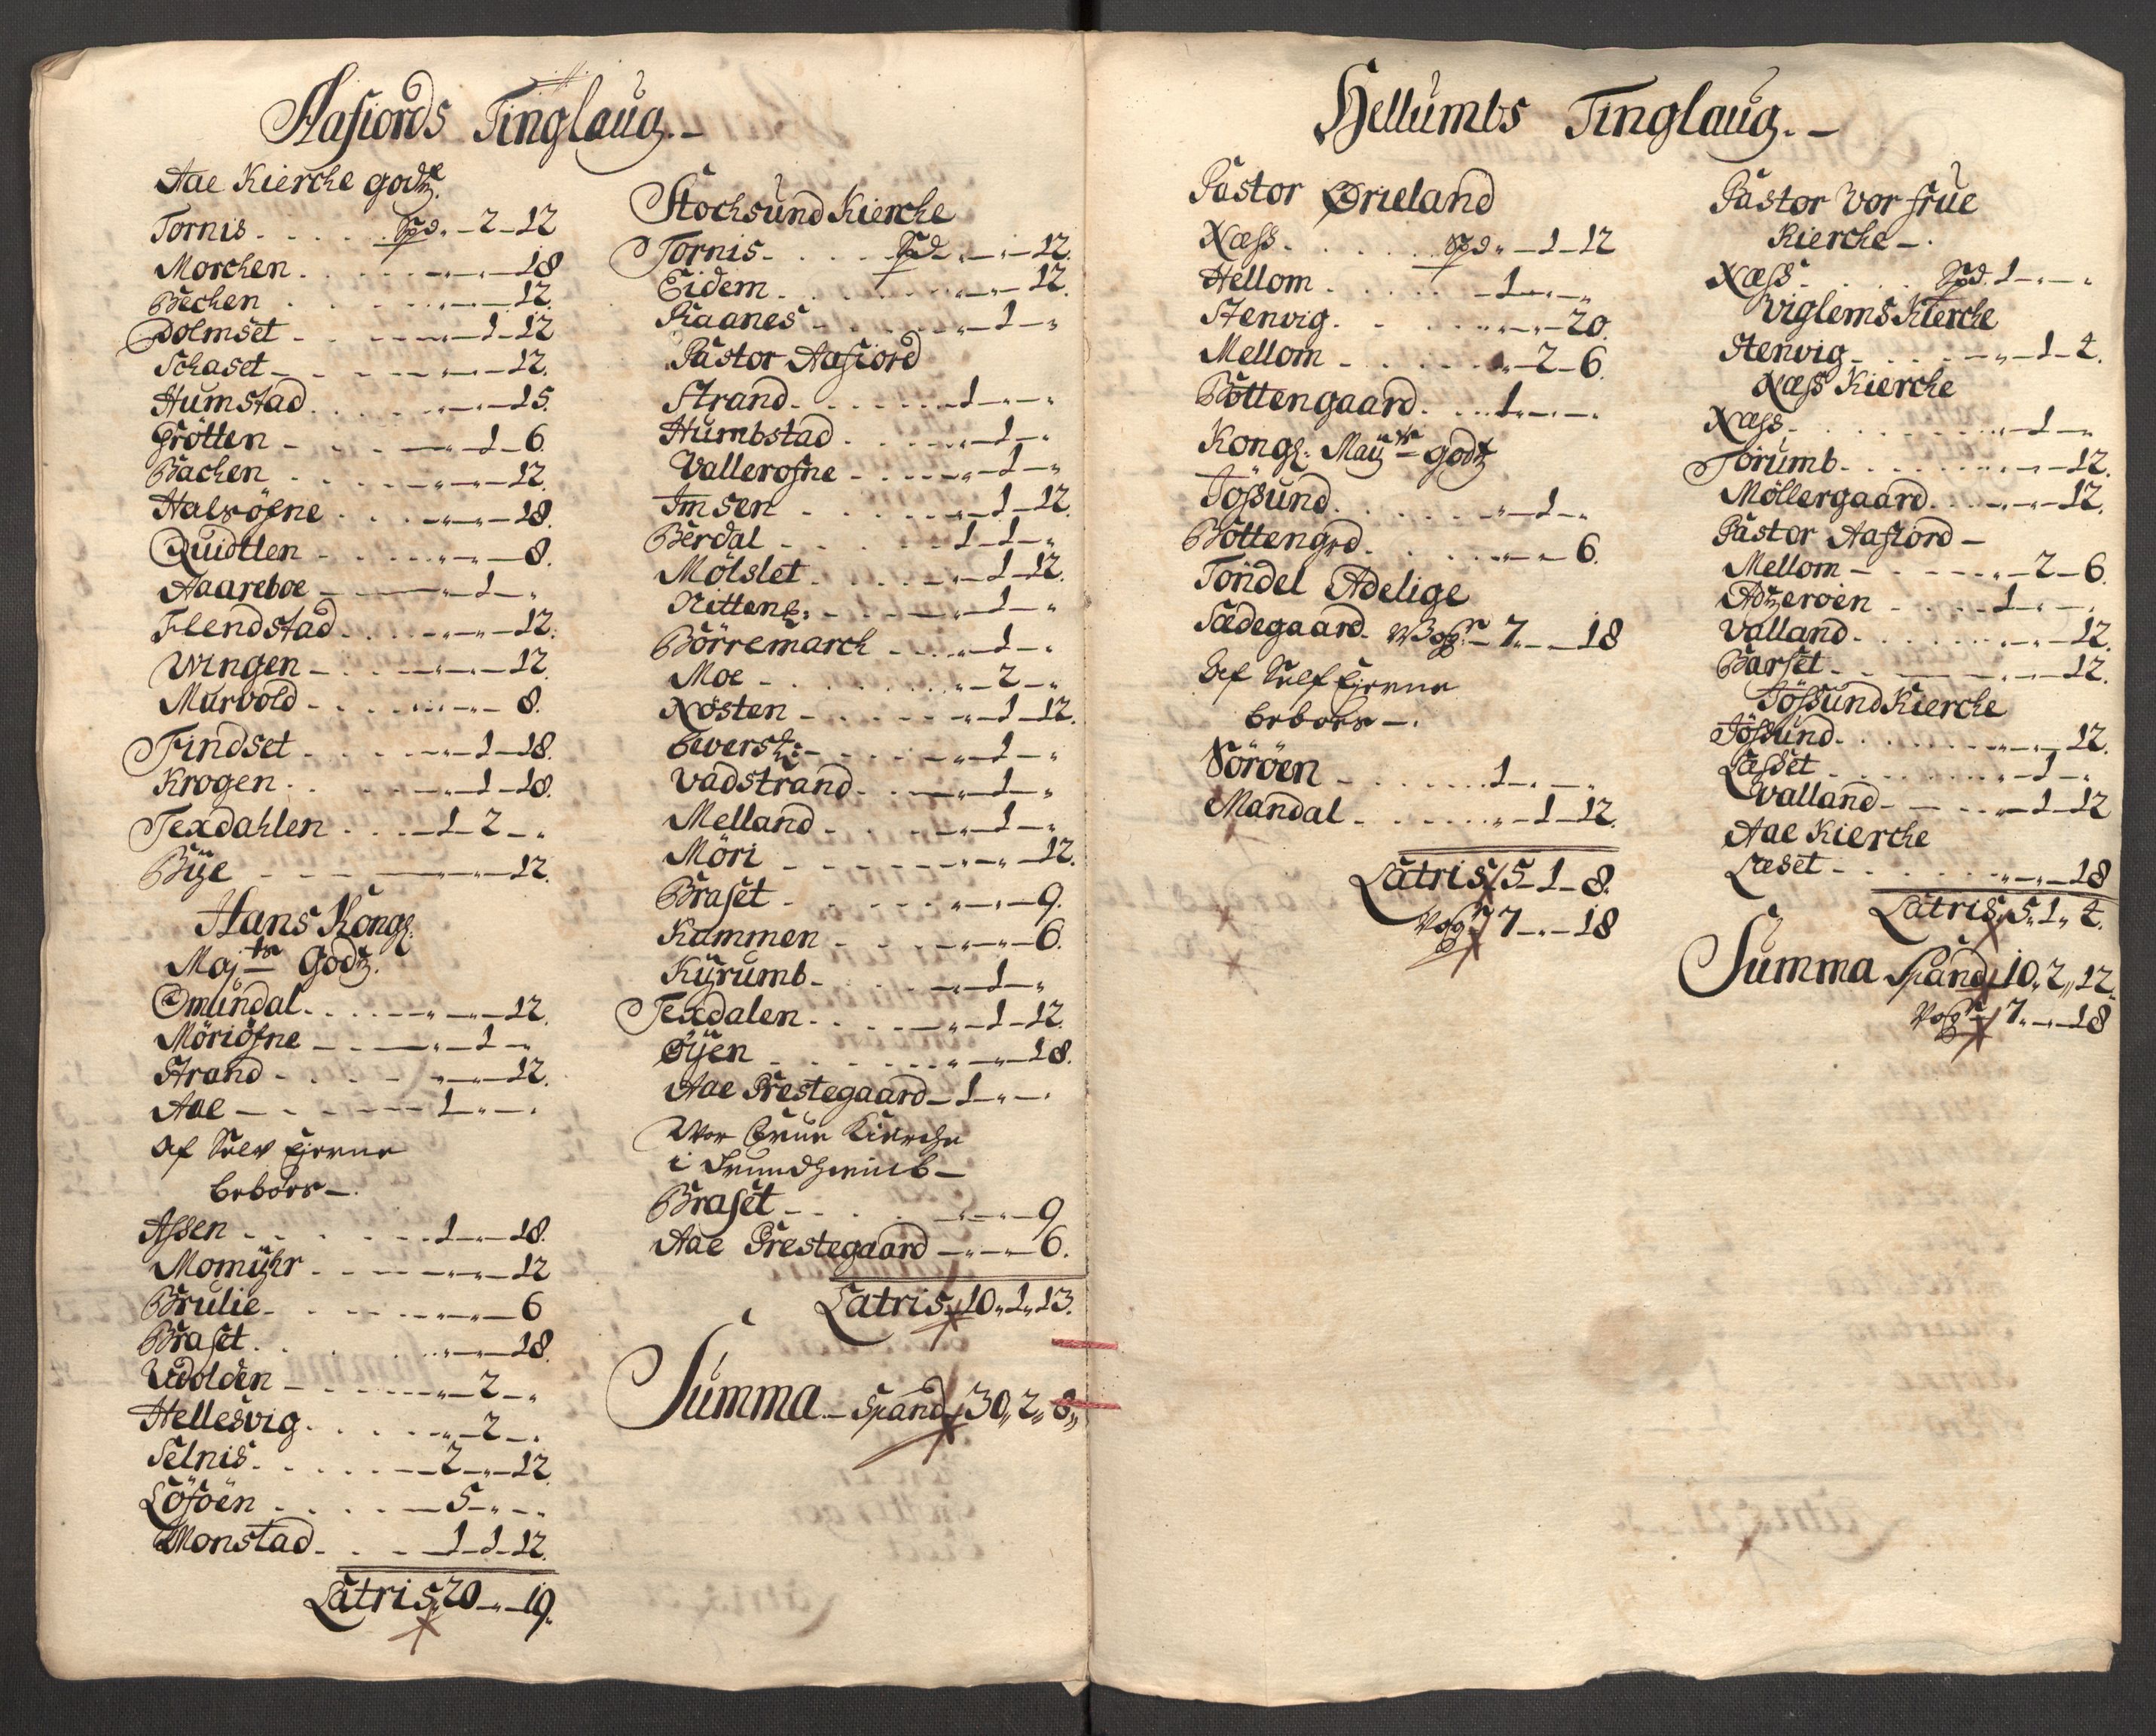 Aafiords Tinglaug.-
Aae Kierche godtz.
Tornis. . . . . Spd. „ - 2 - 12
Morchen. . . . „ - „ - 18
Bechen . . . „ - „ - 12.
Dolmset - . . „ - 1 - 12
Schaset - . . . „ - „ - 12.
Humstad. . . . „ - „ - 15.
Grötten - . . - „ - 1 - 6.
Bachen . . . „ - „ - 12.
Halsöfne . . . „ - „ - 18.
Quidtlen - . . „ - „ - 8.
Aaareboe - - „ - 1 - „
Flendstad. . . „ - „ - 12.
Wingen - . . „ - „ - 12.
Murvold - . . „ - „ - 8.
Findset . . . „ - 1 - 18.
Krogen . . . „ - 1 - 18.
Texdahlen . . . - 1 - 2 - „
Bÿe - - - - „ - „ - 12.
Hans Kongl:
Maj:ts Godtz.
Omundal. . . . „ - „ - 12.
Möriöfne - - - „ - 1 - „
Strand - . . . „ - „ - 12.
Aae - - . - - 1 - „ - „
Af Selv Eierne
bebóer -.
Assen . . . . . 1 - „ - 18.
Momÿhr . . - „ - „ - 12
Brulie - . . . „ - „ - 6
Braset. . . . „ - „ - 18.
Udolden - . . . „ - 2 - „
Hellesvig. . . . „ - 2 - „
Selnis. . . . . - 2 - „ - 12.
Löföen . . . . - 5 - „ - „
Monstad - . . - 1 - 1 - 12.
Latris „ 20 - „ - 19.
Stochsund Kierche
Tornis - . . . . Spd „ - „ - 12.
Eidem - . . . . „ - „ - 12.
Raanes - . . . „ - 1 - „
Pastor Aafiord
Strand - . . . . - 1 - „ - „
Humbstad . . . „ - 1 - „
Vallerofne - . . . „ - 1 - „
Imsen - . . . „ - 1 - 12.
Berdal - . . . . 1 - 1 - „
Mölslet. . . . „ - 1 - 12.
Börremarch - . . „ - 1 - „
Moe - . . . . „ - 2 - „
Nösten - . . . „ - 1 - 12.
Vadstrand - . . „ - 1 - „
Melland - . . . „ - 1 - „
Möri - - - - „ - „ - 12.
Braset - . . . „ - „ - 9.
Rammen - . . „ - „ - 6.
Kÿrumb - . . . „ - 1 - „
Texdalen - . . . „ - 1 - 12.
Öÿen - . . . . „ - „ - 18.
Aae Prestegaard - 1 - „ - „
Vor Frue Kierche
i Trundheimb -
Braset - . . . „ - „ - 9
Aae Prestegaard - „ - „ - 6.
Latris „ 10 „ 1 „ 13.
Summa - Spand „ 30 „ 2 „ 8 „
Hellumbs Tinglaug.-
Pastor Ørieland
Næss. . . . . . Spd „ - 1 - 12
Hellom . . . . . - 1 - „ - „
Stenvig. . . . . „ - „ - 20.
Mellom - . . . . „ - 2 - 6.
Böttengaard. . . . 1 - „ - „
Kongl: Maÿts godtz
Jössund. . . . . „ - 1 - „
Böttengrd. . . . „ - „ - 6.
Töndel Adelige
Sædegaard - Wogr - 7 - „ - 18
Af Self Eierne
bebóer -.
Söröen - . . . . . 1 - „ - „
Mandal - . . . . „ - 1 - 12.
Latris „ 5 - 1 - 8.
Vogr 7 - „ - 18
Pastor Vor frue
Kierche -.
Næss - . . . . Spd. 1 - „ - „
Viglems Kierche
Stenvig - . . . - „ - 1 - 2.
Næss Kierche
Næss - . . . . . „ - 1 - „
Torumb - . . . . „ - „ - 12.
Möllergaard. . . „ - „ - 12.
Pastor Aafiord -
Mellom - . . - „ - 2 - 6.
Adzeroen - . . . . 1 - „ - „
Valland - . . . . „ - „ - 12.
Barset - . . - „ - „ - 12.
Jössund Kierche
Jössund. . . . . „ - „ - 12.
Læsset - . . . . „ - 1 - „
Valland - - . . „ - 1 - 12
Aae Kierche
Læset - . . . . „ - „ - 18
Latris „ 5 „ 1 „ 2.
Summa Spand „ 10 „ 2 „ 12.
Vogr 7 - „ - 18